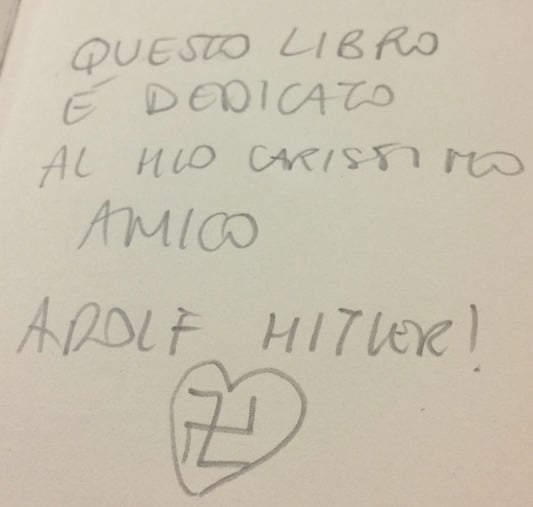 QUESTO LIBRO
É DEDICATO
AL MIO CARISSIMO
AMICO
ADOLF HITLER!